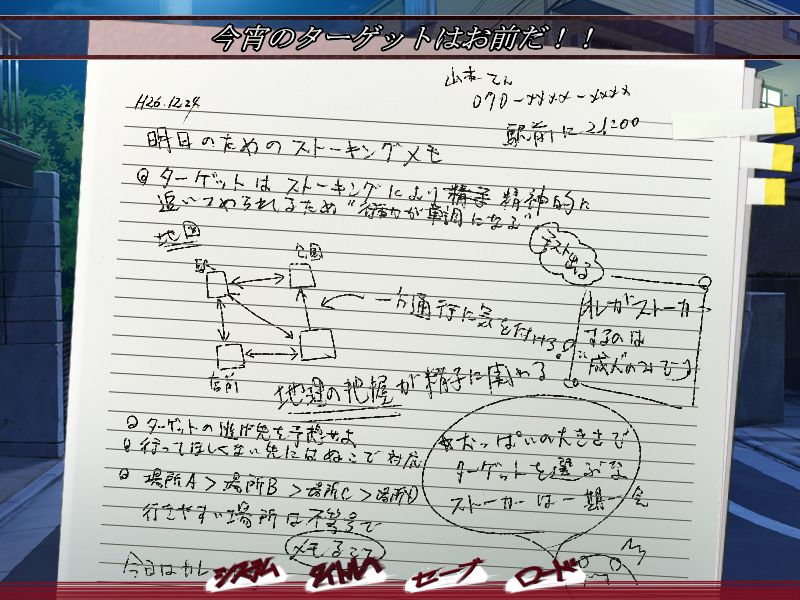 今宵のターゲットはお前だ！！
山本 さん
H26.12.24
070-××××-××××
駅前に 21:00
明日のための ストーキングメモ
ターゲットは ストーキングにより 精神的に
追いつめられてるため "行動が単調になる"
地図
公園
駅
店前
一方通行に気を付けろ。
テスト出る
オレがストーカー
するのは
"成人のみである
地理の把握が精子に関わる
ターゲットの逃げ先を予想せよ
行ってほしくない先にはぬこで対応
場所A > 場所B > 場所C > 場所D
行きやすい場所は不等号で
メモること
おっぱいの大きさで
ターゲットを選ぶな
ストーカーは一期一会
今日はカレ
システム タイトルへ セーブ ロード